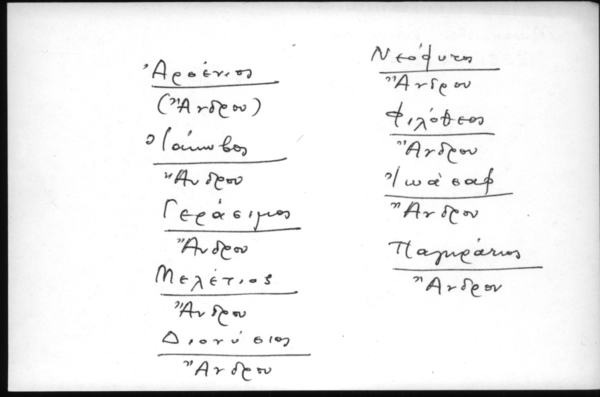 Ἀρσένιος
(Ἄνδρου)
Ἰάκωβος
Ἄνδρου
Γεράσιμος
Ἄνδρου
Μελέτιος
Ἄνδρου
Διονύσιος
Ἄνδρου
Νεόφυτος
Ἄνδρου
Φιλόθεος
Ἄνδρου
Ἰωάσαφ
Ἄνδρου
Παγκράτιος
Ἄνδρου